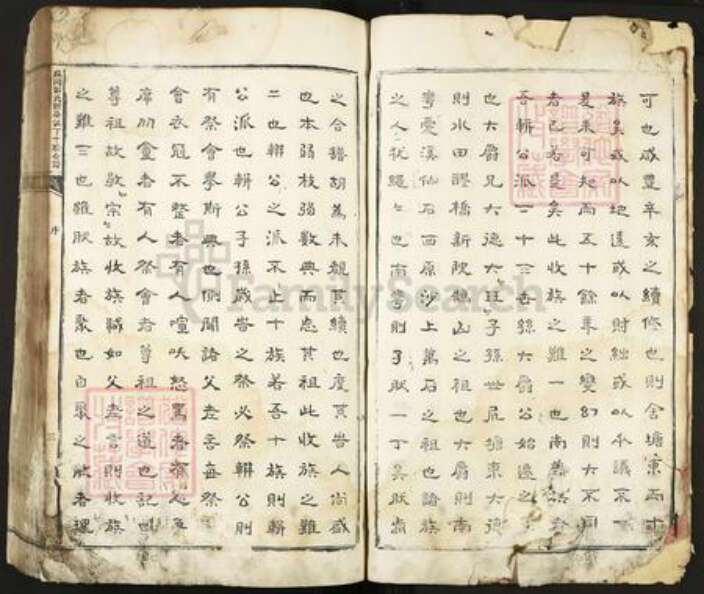 可也咸豐辛亥之續修也則舍塘東而十
族矣或以地遠或以財絀或以不議不
是未可知而五十餘年之變幻則大不同
者已若是矣此收族之難一也南
吾輯公派二十三世孫大爵公始遷之子
也大爵兄大德大旺子孫世居塘東大德
則水田醪橋新陂他山之祖也大爵則南
灣雯溪仙石西原沙上萬石之祖也諸族
之人犹繩繩也南則子肰一丁矣肰
之合譜胡為未覩其續也度其咎人尚盛
也本弱枝弱數典而忘其祖此收族之難
二也輯公之派不止十族若吾十族則輯
公派也輯公子孫歲皆之祭必祭輯公則
有祭會擧斯典也側聞諸父老言每祭
會衣冠不整者有人喧呋怒罵者
席者有人祭會者尊祖之道也記曰
尊祖故敬宗故收族誠如父老言則收族
之難三也雖肰族者聚也自聚之散者理
序
FamilySearch